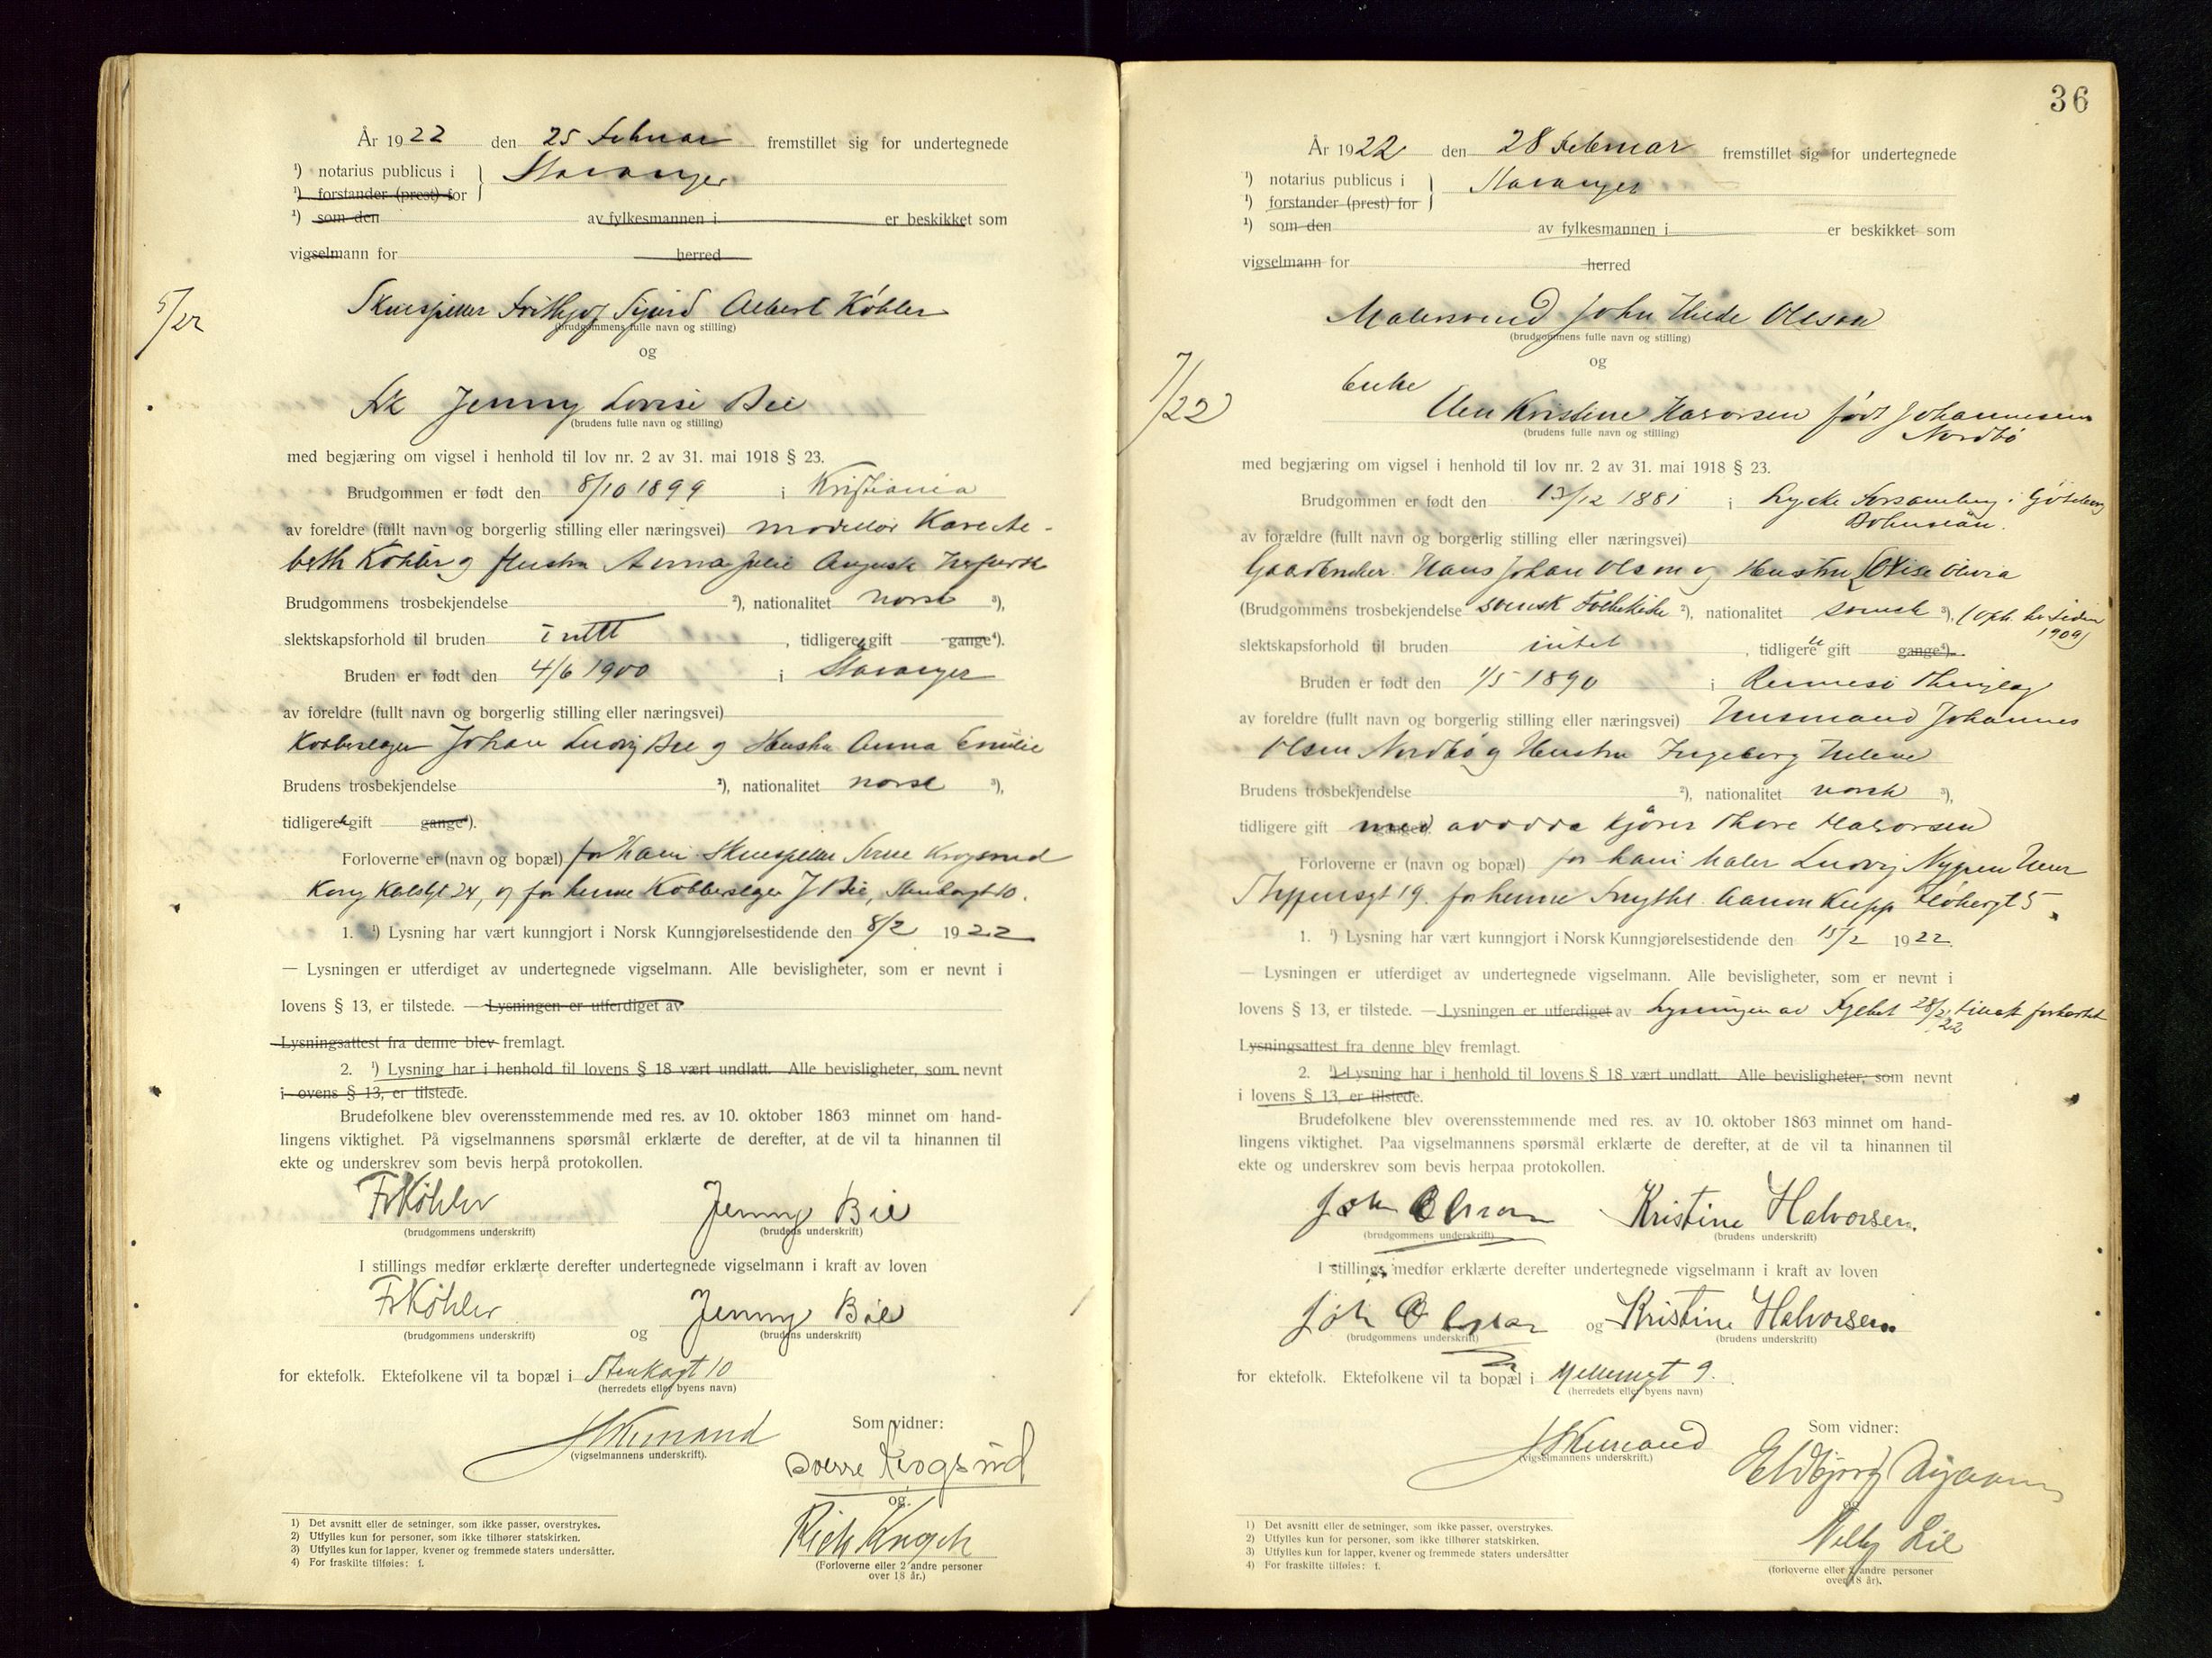 År 1922 den 25 Februar fremstillet sig for undertegnede
¹) notarius publicus i Stavanger
¹) forstander (prest) for
¹) som den av fylkesmannen i er beskikket som
vigselmann for herred
5/22
Skuespiller Frithjof Sigurd Albert Köhler
(brudgommens fulle navn og stilling)
og
Frk Jenny Lovise Bie
(brudens fulle navn og stilling)
med begjæring om vigsel i henhold til lov nr. 2 av 31. mai 1918 § 23.
Brudgommen er født den 8/10 1899 i Kristiania
av foreldre (fullt navn og borgerlig stilling eller næringsvei) modellør
Köhler og Hustru Anna Julie Auguste
Brudgommens trosbekjendelse ²), nationalitet norsk ³),
slektskapsforhold til bruden intet, tidligere gift gange⁴).
Bruden er født den 4/6 1900 i Stavanger
av foreldre (fullt navn og borgerlig stilling eller næringsvei)
Kobberslager Johan Ludvig Bie og Hustru Anna Emilie
Brudens trosbekjendelse ²), nationalitet norsk ³),
tidligere gift gange⁴).
Forloverne er (navn og bopæl) for ham Skuespiller Sverre Krogsrud
Kongsgt 24, og for henne Kobberslager J Bie, Stenkargt 10.
1. ¹) Lysning har vært kunngjort i Norsk Kunngjørelsestidende den 8/2 1922
— Lysningen er utferdiget av undertegnede vigselmann. Alle bevisligheter, som er nevnt i
lovens § 13, er tilstede. — Lysningen er utferdiget av
Lysningsattest fra denne blev fremlagt.
2. ¹) Lysning har i henhold til lovens § 18 vært undlatt. Alle bevisligheter, som nevnt
i ovens § 13, er tilstede.
Brudefolkene blev overensstemmende med res. av 10. oktober 1863 minnet om hand-
lingens viktighet. På vigselmannens spørsmål erklærte de derefter, at de vil ta hinannen til
ekte og underskrev som bevis herpå protokollen.
Fr Köhler Jenny Bie
(brudgommens underskrift) (brudens underskrift)
I stillings medfør erklærte derefter undertegnede vigselmann i kraft av loven
Fr Köhler og Jenny Bie
(brudgommens underskrift) (brudens underskrift)
for ektefolk. Ektefolkene vil ta bopæl i Stenkargt 10
(herredets eller byens navn)
(vigselmannens underskrift).
Som vidner:
Sverre Krogsrud
og
(Forloverne eller 2 andre personer
over 18 år.)
1) Det avsnitt eller de setninger, som ikke passer, overstrykes.
2) Utfylles kun for personer, som ikke tilhører statskirken.
3) Utfylles kun for lapper, kvener og fremmede staters undersåtter.
4) For fraskilte tilføies: f.
36
År 1922 den 28 Februar fremstillet sig for undertegnede
¹) notarius publicus i Stavanger
¹) forstander (prest) for
¹) som den av fylkesmannen i er beskikket som
vigselmann for herred
Malersvend John Olsson
(brudgommens fulle navn og stilling)
og
7/22
Enke
Elen Kristine Halvorsen født Johannesen
Nordbö
(brudens fulle navn og stilling)
med begjæring om vigsel i henhold til lov nr. 2 av 31. mai 1918 § 23.
Brudgommen er født den 13/12 1881 i Lycke Forsamling i Göteborg
Bohuslän.
av forældre (fullt navn og borgerlig stilling eller næringsvei)
Gaardbruker Hans Johan Olsson og Hustru Lovise Olivia
(Brudgommens trosbekjendelse svensk Folkekirke ²), nationalitet svensk ³), (oph. her siden
1909)
slektskapsforhold til bruden intet, tidligere gift gange⁴).
Bruden er født den 1/5 1890 i Rennesö Thinglag
av foreldre (fullt navn og borgerlig stilling eller næringsvei) Husmand Johannes
Olsen Nordbö og Hustru Ingeborg Helene
Brudens trosbekjendelse ²), nationalitet norsk ³),
tidligere gift gange⁴) med avdöde kjörer Thore Halvorsen
Forloverne er (navn og bopæl) for ham Maler Ludvig Nygren
19. for henne Aanon Kupp 5
1. ¹) Lysning har vært kunngjort i Norsk Kunngjørelsestidende den 15/2 1922.
— Lysningen er utferdiget av undertegnede vigselmann. Alle bevisligheter, som er nevnt i
lovens § 13, er tilstede. — Lysningen er utferdiget av Lysningen av 28/2 22
Lysningsattest fra denne blev fremlagt.
2. ¹) Lysning har i henhold til lovens § 18 vært undlatt. Alle bevisligheter, som nevnt
i lovens § 13, er tilstede.
Brudefolkene blev overensstemmende med res. av 10. oktober 1863 minnet om hand-
lingens viktighet. Paa vigselmannens spørsmål erklærte de derefter, at de vil ta hinannen til
ekte og underskrev som bevis herpaa protokollen.
Joh Olsson Kristine Halvorsen.
(brudgommens underskrift) (brudens underskrift)
I stillings medfør erklærte derefter undertegnede vigselmann i kraft av loven
Joh Olsson og Kristine Halvorsen.
(brudgommens underskrift) (brudens underskrift)
for ektefolk. Ektefolkene vil ta bopæl i Mellemgt 9.
(herredets eller byens navn)
(vigselmannens underskrift.)
Som vidner:
og
Nelly Lie
(forloverne eller 2 andre personer
over 18 år).
1) Det avsnitt eller de setninger, som ikke passer, overstrykes.
2) Utfylles kun for personer, som ikke tilhører statskirken.
3) Utfylles kun for lapper, kvener og fremmede staters undersåtter
4) For fraskilte tilføies: f.